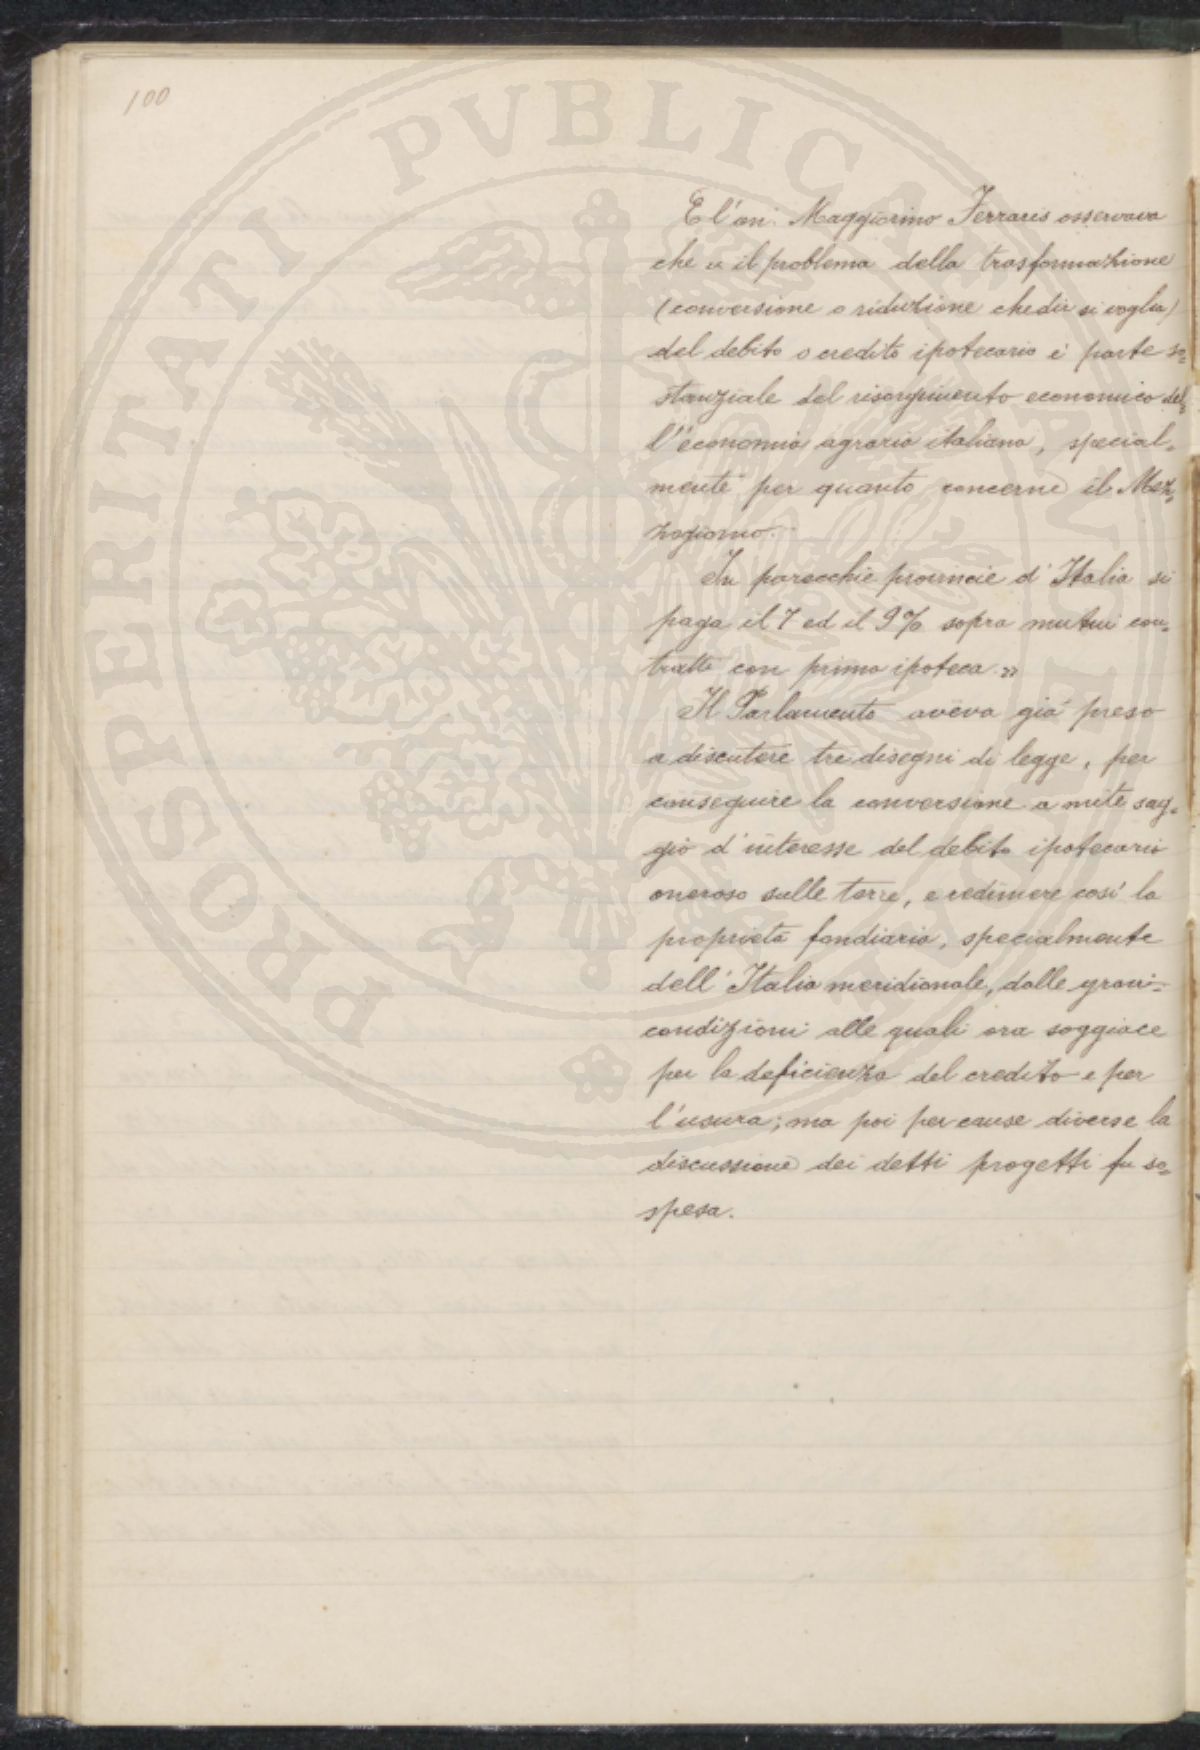 100
E l'on. Maggiorino Ferraris osservava
che « il problema della trasformazione
(conversione o riduzione che dir si voglia)
del debito o credito ipotecario è parte so=
stanziale del risorgimento economico del=
l'economia agraria italiana, special=
mente per quanto concerne il Mez=
zogiorno.
In parecchie provincie d'Italia si
paga il 7 ed il 9% sopra mutui con=
tratti con prima ipoteca.»
Il Parlamento aveva già preso
a discutere tre disegni di legge, per
conseguire la conversione a mite sag=
gio d'interesse del debito ipotecario
oneroso sulle terre, e redimere così la
proprietà fondiaria, specialmente
dell'Italia meridionale, dalle gravi
condizioni alle quali ora soggiace
per la deficienza del credito e per
l'usura; ma poi per cause diverse la
discussione dei detti progetti fu so=
spesa.
PROSPERITATI PVBLICAE